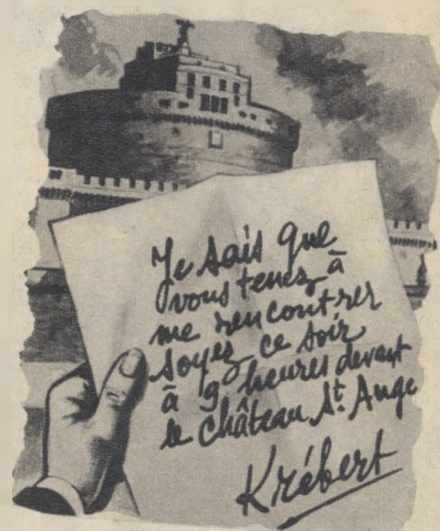 Je sais que
vous tenez à
me rencontrer
soyez ce soir
à 9 heures devant
le Château St Ange
Krébert